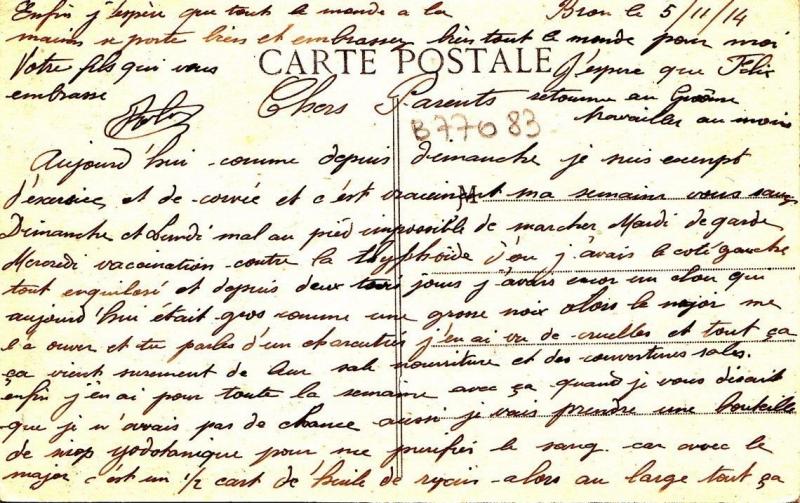 Bron le 5/11/14
CARTE POSTALE
Chers Parents
B77083
Aujourd'hui comme depuis dimanche je suis exempt
d'exercice et de corvée et c'est vraiment ma semaine vous savez
M
Dimanche et Lundi mal au pied impossible de marcher Mardi de garde
Mercredi vaccination contre la thyphoïde d'ou j'avais le coté gauche
tout enquilosé et depuis deux jours j'avais encor un clou qui
aujourd'hui était gros comme une grosse noix alors le major me
l'a ouver et tu parles d'un charcutier j'en ai vu de cruelles et tout ça
ça vient surement de leur sale nourriture et des couvertures sales.
enfin j'en ai pour toute la semaine avec ça quand je vous disait
que je n'avais pas de chance aussi je vais prendre une bouteille
de sirop yodotanique pour me purifier le sang car avec le
major c'est un 1/2 cart de l'huile de rycin alors au large tout ça
Enfin j'espère que tout le monde a la
maison se porte bien et embrasser bien tout le monde pour moi
Votre fils qui vous
embrasse
J'espere que Felix
retourne au
travailler au moins